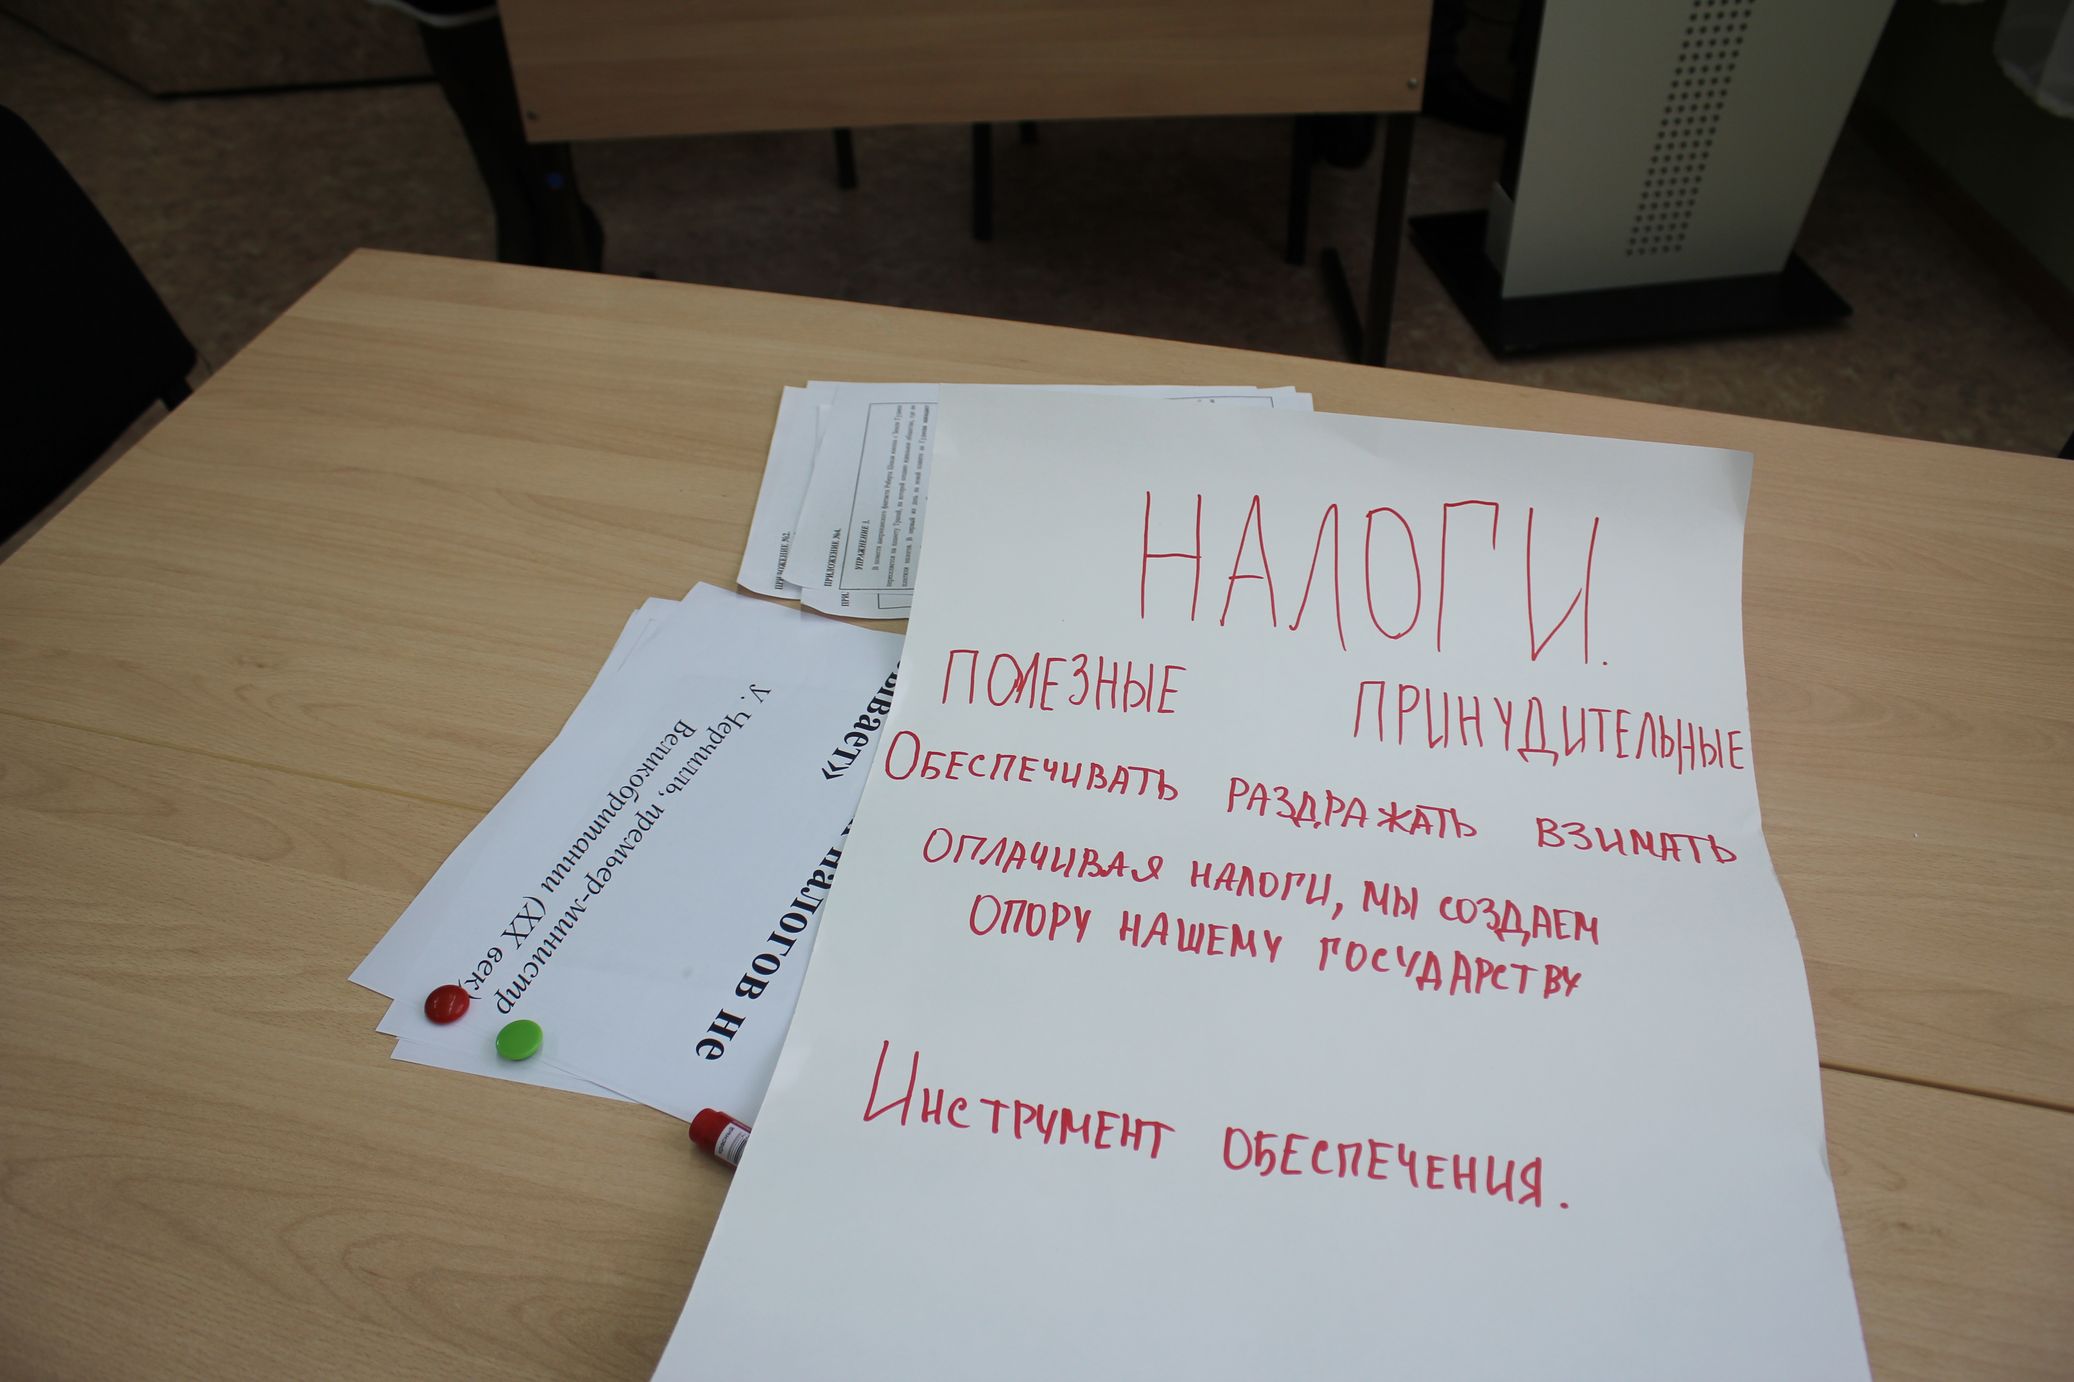 НАЛОГИ.
ПОЛЕЗНЫЕ ПРИНУДИТЕЛЬНЫЕ
ОБЕСПЕЧИВАТЬ РАЗДРАЖАТЬ ВЗИМАТЬ
ОПЛАЧИВАЯ НАЛОГИ, МЫ СОЗДАЕМ
ОПОРУ НАШЕМУ ГОСУДАРСТВУ
ИНСТРУМЕНТ ОБЕСПЕЧЕНИЯ.
налогов не
ывает»
У. Черчилль, премьер-министр
Великобритании (XX век)
ПРИЛОЖЕНИЕ №2.
ПРИЛОЖЕНИЕ №4.
УПРАЖНЕНИЕ 1.